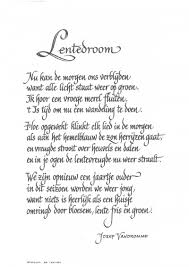 Lentedroom
Nu kan de morgen ons verblijden
want alle licht staat weer op groen.
Ik hoor een vroege merel fluiten,
't Is tijd om nu een wandeling te doen.
Hoe opgewekt klinkt elk lied in de morgen
als aan het hemelblauw de zon herrijzen gaat
en vreugde strooit over heuvels en dalen
en in je ogen de lentevreugde nu weer straalt.
We zijn opnieuw een jaartje ouder
in dit seizoen worden we weer jong,
want niets is heerlijk als een huisje
omringd door bloesem, lente fris en groen.
Jozef Vandromme